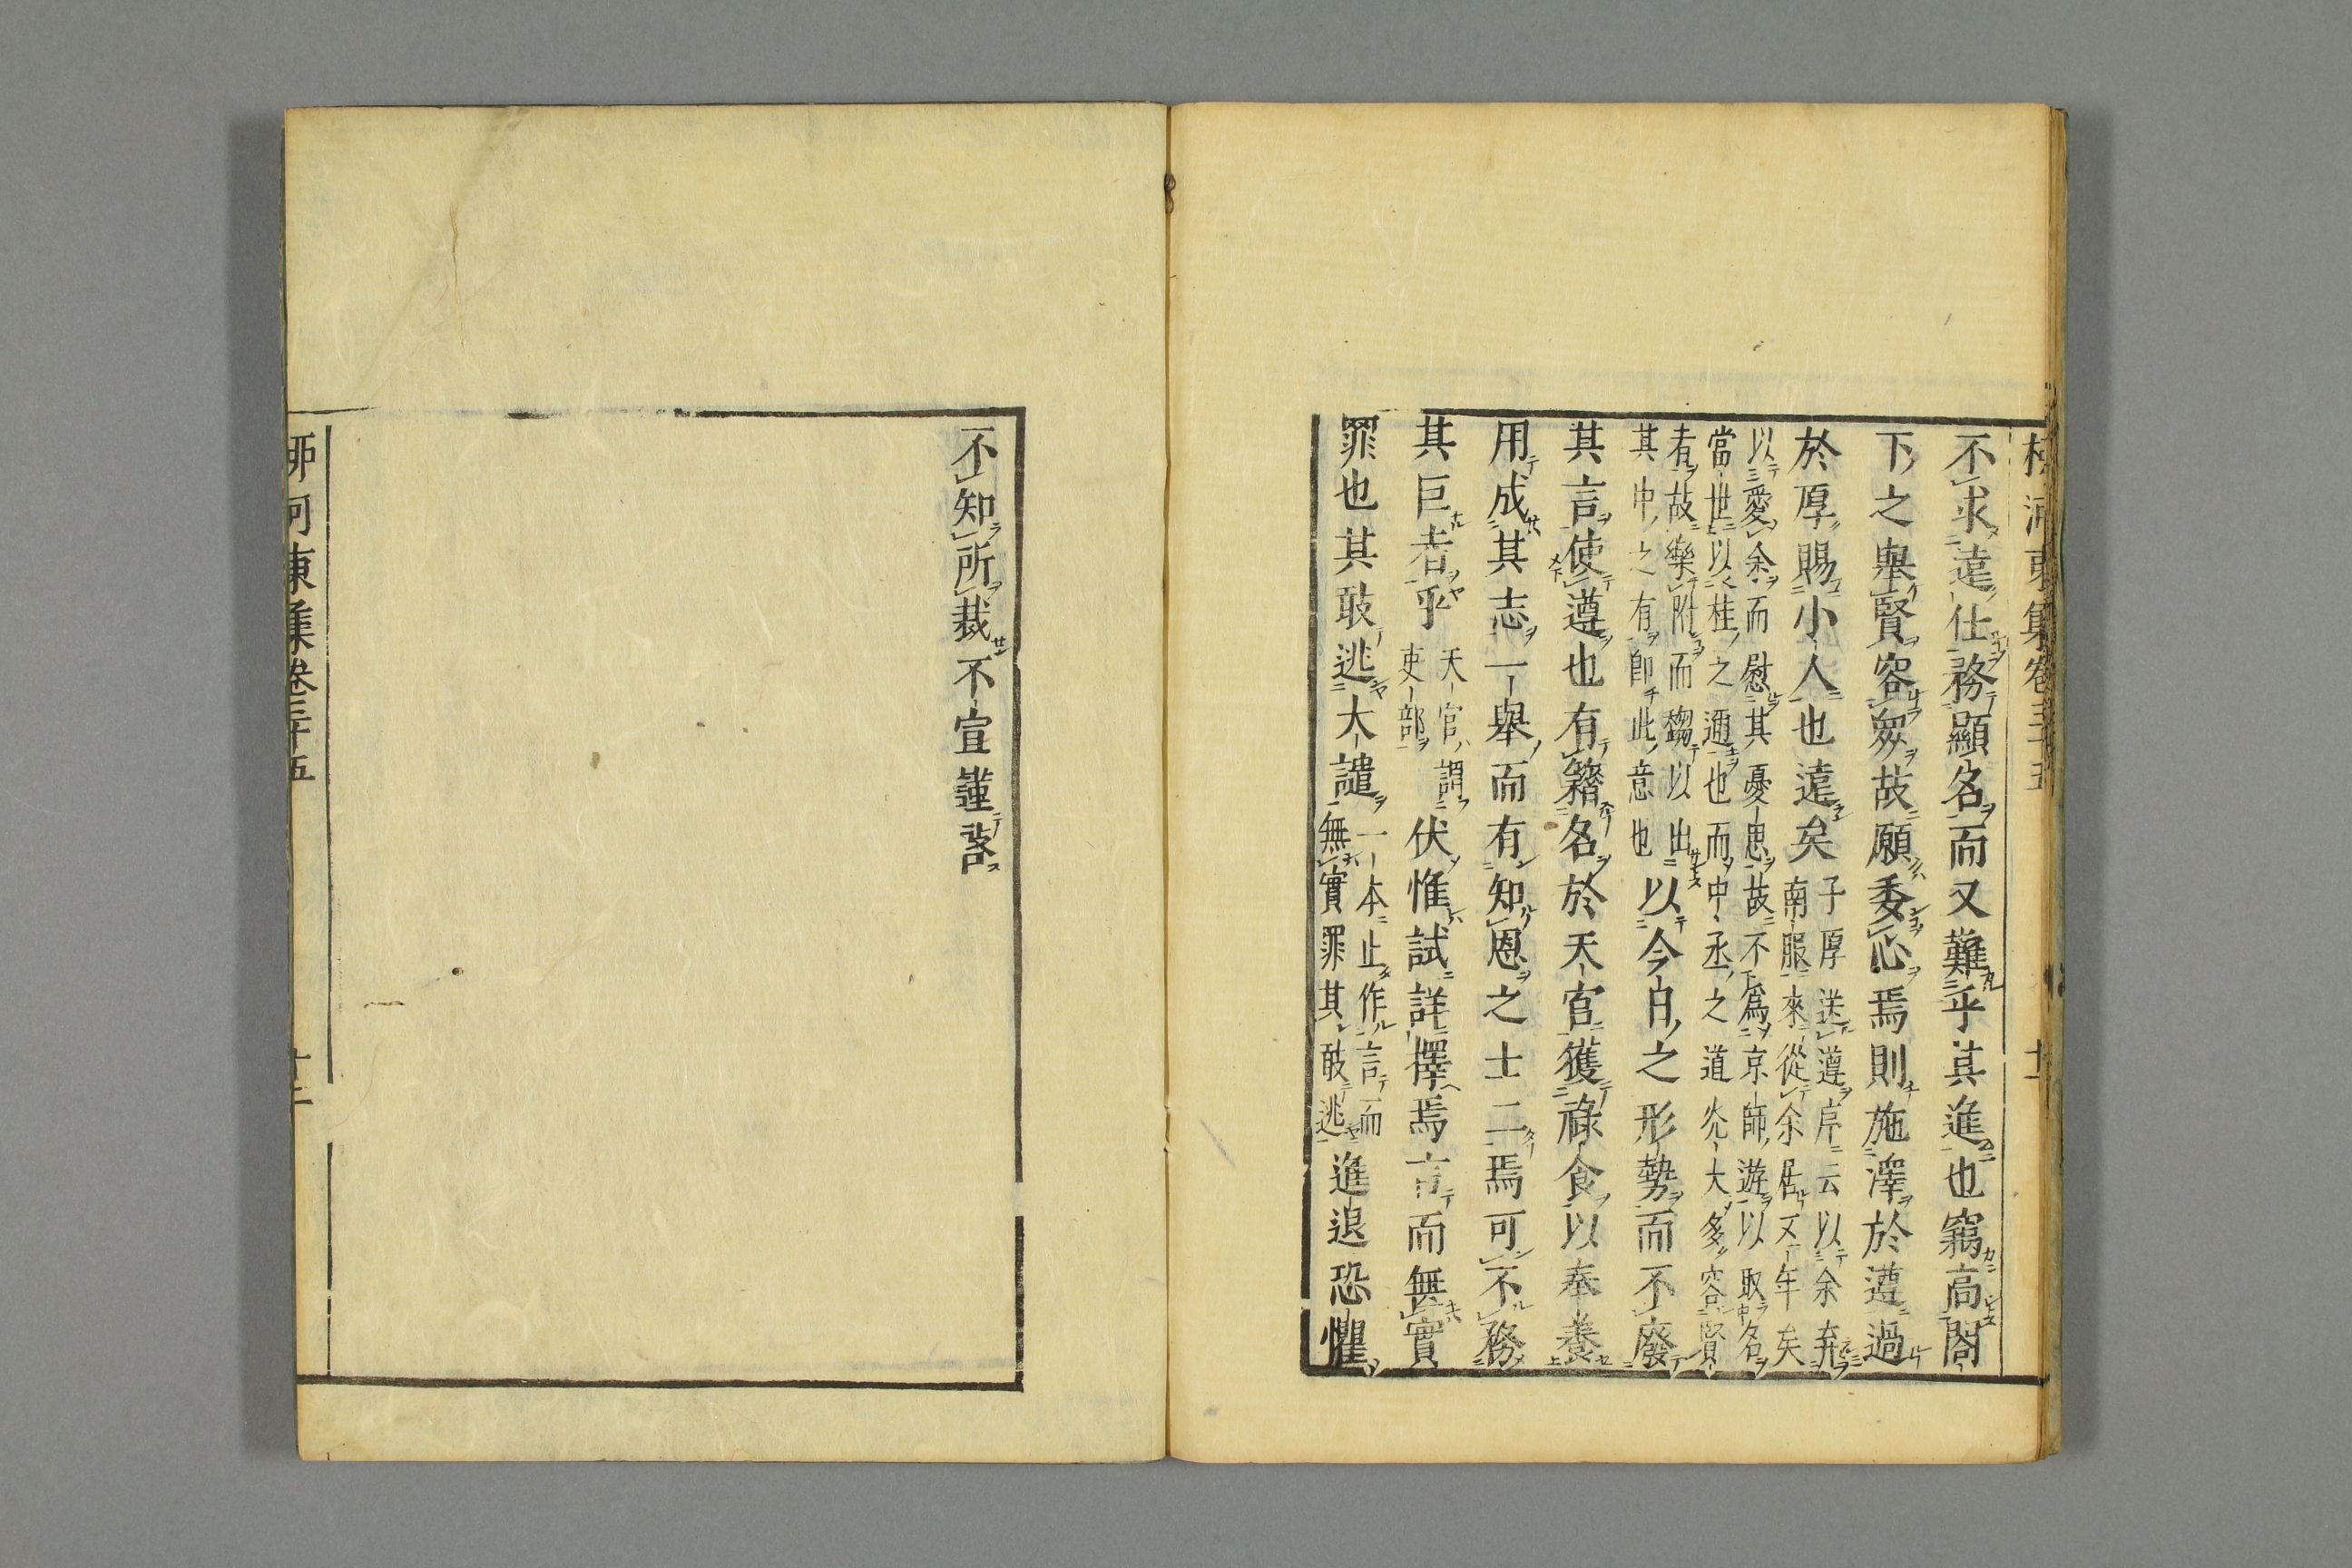 不求遠仕務顯名而又難乎其進也竊高閤
下之舉賢容衆故願委心焉則施澤於遵過
於厚賜小人也遠矣
子厚送遵序云以余弃
南服來從余居五年矣
以愛余而慰其憂思故不爲京師遊以取名
當世以桂之邇也而中丞之道光大多容賢
者故樂附而趨以出
其中之有卽此意也
以今日之形勢而不廢
其言使遵也有籍名於天官獲祿食以奉養
用成其志一舉而有知恩之士二焉可不務
其巨者乎
天官謂
吏部
伏惟試詳擇焉言而無實
罪也其敢逃大譴
一本止作言而
無實罪其敢逃
進退恐懼
不知所裁不宣謹啓
柳河東集卷三十五